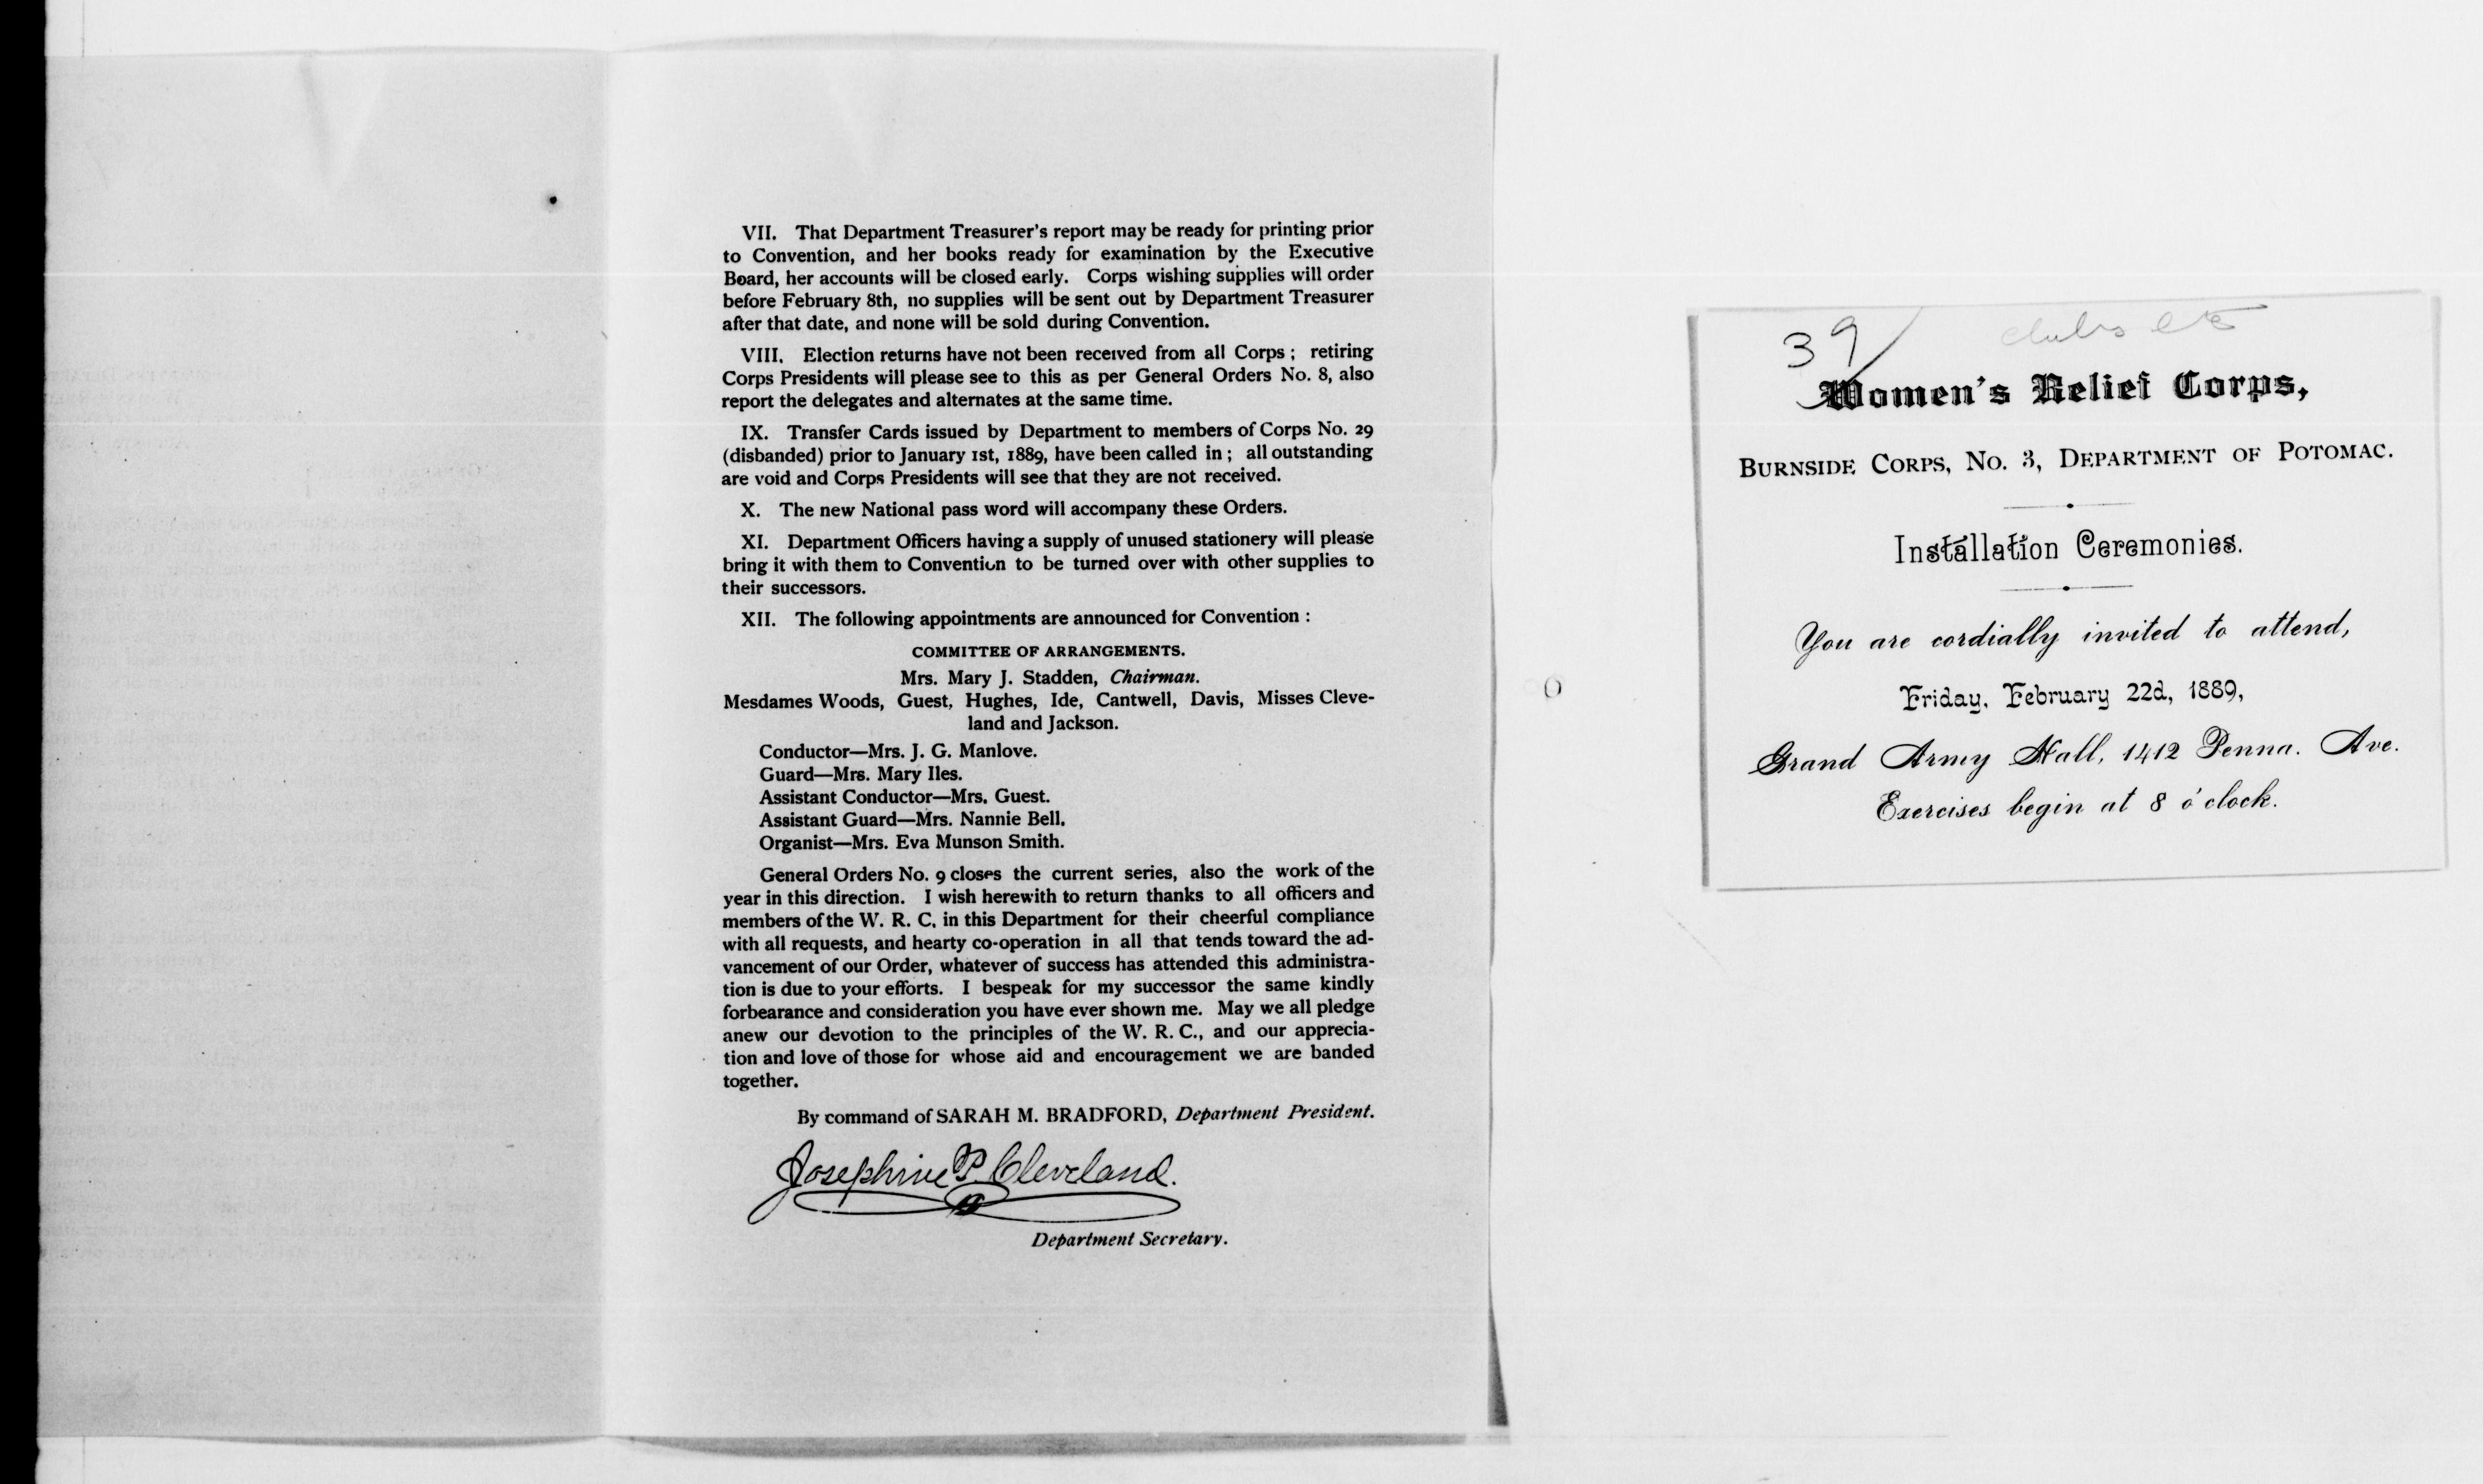 VII. That Department Treasurer's report may be ready for printing prior
to Convention, and her books ready for examination by the Executive
Board, her accounts will be closed early. Corps wishing supplies will order
before February 8th, no supplies will be sent out by Department Treasurer
after that date, and none will be sold during Convention.
VIII. Election returns have not been received from all Corps; retiring
Corps Presidents will please see to this as per General Orders No. 8, also
report the delegates and alternates at the same time.
IX. Transfer Cards issued by Department to members of Corps No. 29
(disbanded) prior to January 1st, 1889, have been called in; all outstanding
are void and Corps Presidents will see that they are not received.
X. The new National pass word will accompany these Orders.
XI. Department Officers having a supply of unused stationery will please
bring it with them to Convention to be turned over with other supplies to
their successors.
XII. The following appointments are announced for Convention:
COMMITTEE OF ARRANGEMENTS.
Mrs. Mary J. Stadden, Chairman.
Mesdames Woods, Guest, Hughes, Ide, Cantwell, Davis, Misses Cleve-
land and Jackson.
Conductor—Mrs. J. G. Manlove.
Guard—Mrs. Mary Iles.
Assistant Conductor—Mrs. Guest.
Assistant Guard—Mrs. Nannie Bell.
Organist—Mrs. Eva Munson Smith.
General Orders No. 9 closes the current series, also the work of the
year in this direction. I wish herewith to return thanks to all officers and
members of the W. R. C. in this Department for their cheerful compliance
with all requests, and hearty co-operation in all that tends toward the ad-
vancement of our Order, whatever of success has attended this administra-
tion is due to your efforts. I bespeak for my successor the same kindly
forbearance and consideration you have ever shown me. May we all pledge
anew our devotion to the principles of the W. R. C., and our apprecia-
tion and love of those for whose aid and encouragement we are banded
together.
By command of SARAH M. BRADFORD, Department President.
Josephine P. Cleveland.
Department Secretary.
39
clubs etc
Women's Relief Corps,
BURNSIDE CORPS, NO. 3, DEPARTMENT OF POTOMAC.
Installation Ceremonies.
You are cordially invited to attend,
Friday, February 22d, 1889,
Grand Army Hall, 1412 Penna. Ave.
Exercises begin at 8 o'clock.